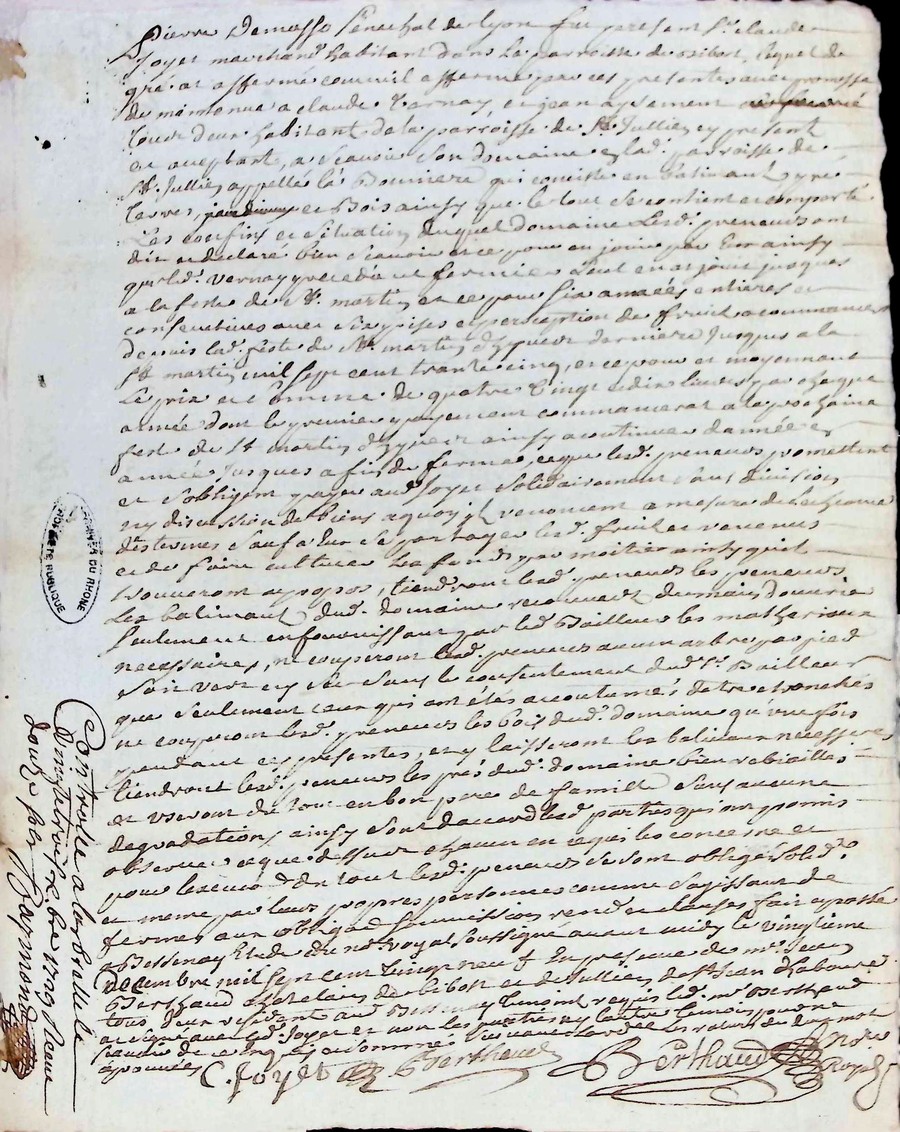 Pierre Demasso Senechal de lyon fut present Sr. claude
Joyet marchand habitant dans la parroisse de Bibost, lequel de
gré at affermé comme il afferme par ces presentes avec promesse
de maintenue a claude Varnay et jean aysement
tous deux habitant de la parroisse de St. Jullien y present
et aceptant, a Scavoir Son domaine en lad. parroisse de
St. Jullien appellé la Bonniere qui consiste en batimants, pré
terres, et Bois ainsy que le tout Se contient et comporte
Les confins et Situation duquel domaine Lesd. preneurs ont
dit et declaré bien Scavoir et ce pour en jouir par Eux ainsy
que led. Vernay precedant fermier Leut en at jouit jusques
a la feste de St. martin et ce pour Six années entieres et
consecutives avec Six prises et perception de fruits a commancer
depuis lad. feste de St. martin d'hyver derniere Jusques a la
St. martin mil Sept cent trante cinq, et ce pour et moyennant
Le prix et Somme de quatre Vingt et dix livres par chaque
année dont le premier payement commancerat a la prochaine
feste de St martin d'hyver ainsy a continuer d'année en
année Jusques a fin de ferme, ce que lesd. preneurs promettent
et S'obligent payer aud. Joyet Solidairement Sans division
ny discussion de biens a quoy ils renoncent a mesure de
des termes Sauf a Eux de partager lesd. fruits et revenus
et de faire cultiver Les fonds par moitier ainsy quil
trouveront apropos, tiendront lesd. preneurs
Les batimants dud. domaine recouverts de main d'ouvrie
Seulement en fournissant par led. Bailleur les matheriaux
necessaires, ne couperont lesd. preneurs aucun arbre par pied
Soit vert ou Sec Sans le consentement dud. Sr. Bailleur
que Seulement ceux qui ont étés accoutumés detre
ne couperont lesd. preneurs les bois dud. domaine qu'une fois
pendant ces presentes, et y laisseront les baliveaux necesseres
tiendront lesd. preneurs les prés dud. domaine bien
et useront du tout en bon pere de famille Sans aucune
degradations, ainsy Sont d'accord lesd. parties qui ont promis
observer ce que dessus chacun en ce qui les concerne et
pour lexecuon. de tout lesd. preneurs Se sont obligés Solidt.
et meme par leurs propres personnes comme Sagissant de
fermes aux obligaons. Soumissions renons. et clauses fait et passé
a Bessenay Etude du not. Royal Soussigné avant midy le vingtieme
Decembre mil Sept cent Vingt neuf En presence de me. Jean
Berthaud chatelain de bibost et St Jullien, et de
tous deux residant aud. Bessenay temoins requis led. me Berthaud
at signé avec led. Joyet et non les parties ny lautre temoin pour ne
Scavoir de ce enquis et Sommés
C. Joyet Berthaud Berthaud Notre
Royal
Controllé a larbrelle le
vingt neuf
Douze Sols Raymond
ARCHIVES DU RHONE
PROPRIETE PUBLIQUE